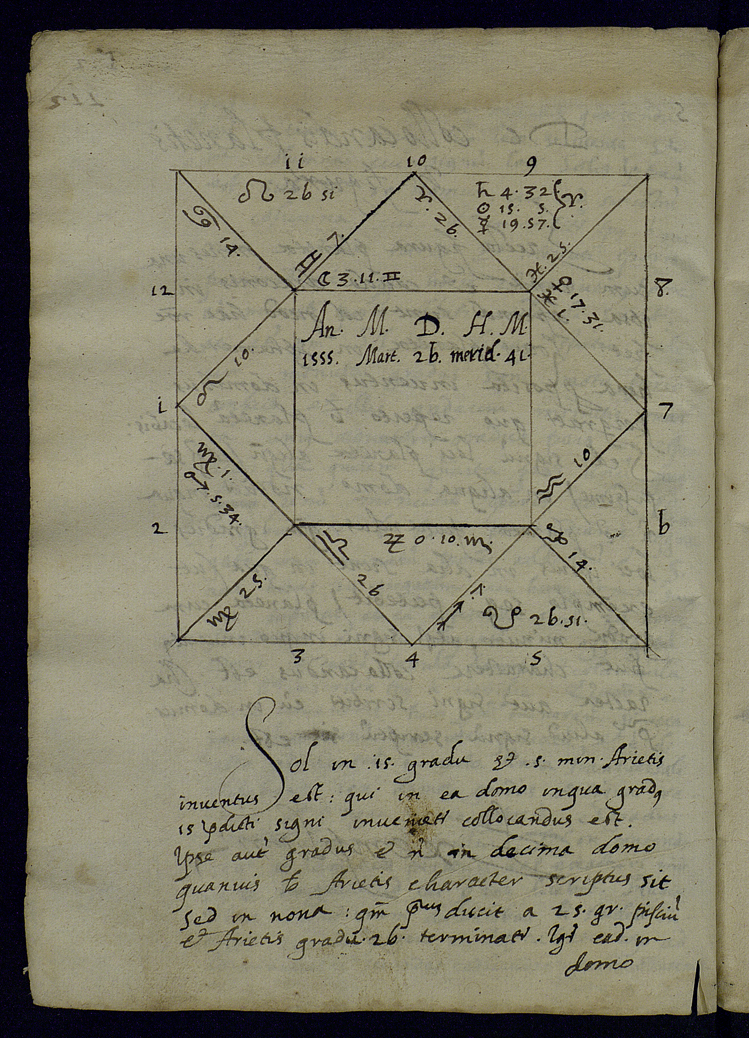 11 10 9
♌ 26 si
♋ 14.
♊ 7.
♈. 26.
♄ 4. 32
☉ 15. 5.
☿ 19. 57.
♈.
♓. 25.
12
☾ 3. 11. ♊
♀. 17. 31.
♓ 1.
8.
An. M. D. H. M.
1555. Mart. 26. merid. 41.
♌ 10.
1
7
♍. 1.
♂. 5. 34.
♒ 10
2
♎ 26
♃ 0. 10. ♏
♑ 14.
6
♍ 25.
♐ 7.
26. 51.
3 4 5
Sol in .15. gradu et .5. min. Arietis
inventus est: qui in ea domo in qua gradq
15 p̄dicti signi invenietr collocandus est.
Ipse aut gradus ē n̄ in decima domo
quanuis ♄ Arietis character scriptus sit
Sed in nona: qm̄ ducit a 25. gr. pisciū
et Arietis gradu. 26. terminatr. Igr ead. in
domo